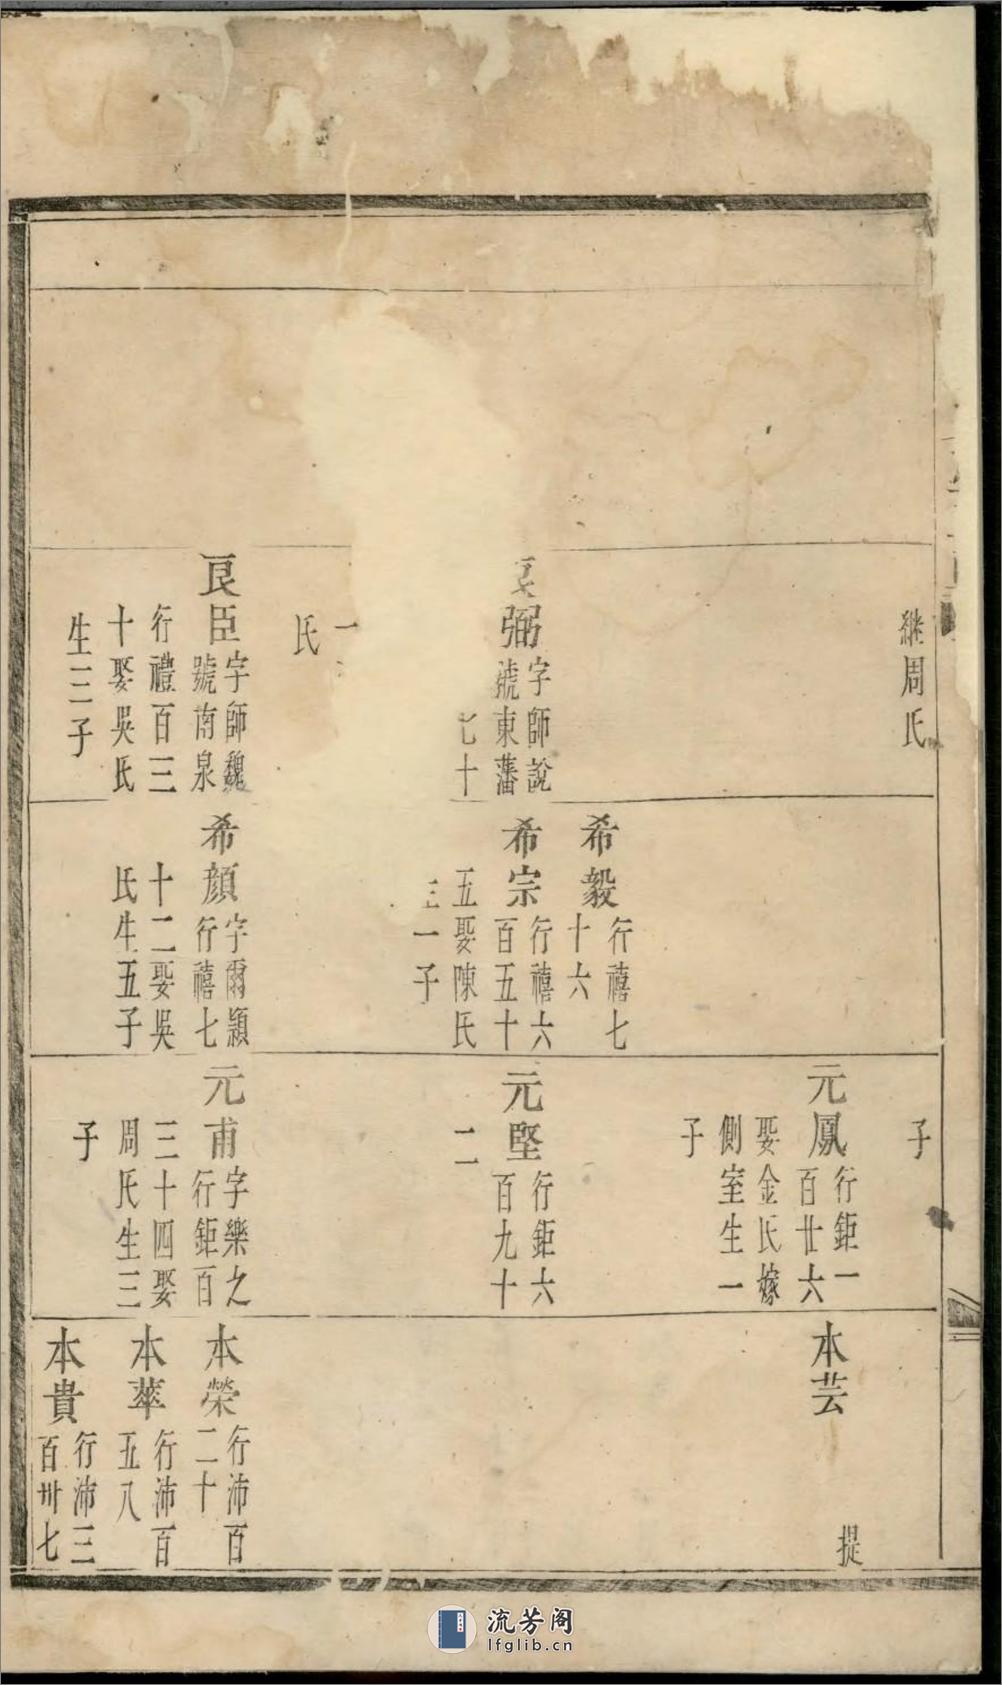 继周氏
弼
字師說
號東藩
七十
一
氏
良臣
字師魏
號南泉
行禮百三
十娶吳氏
生三子
希毅
行禧七
十六
希宗
行禧六
百五十
五娶陳氏
一子
希顏
字爾穎
行禧七
十二娶吳
氏生五子
子
元鳳
行鉅一
百廿六
娶金氏嫁
側室生一
子
元堅
行鉅六
百九十
二
元甫
字樂之
行鉅百
三十四娶
周氏生三
子
本芸
提
本榮
行沛百
二十
本萃
行沛百
五八
本貴
行沛三
百卅七
流芳阁
lfglib.cn